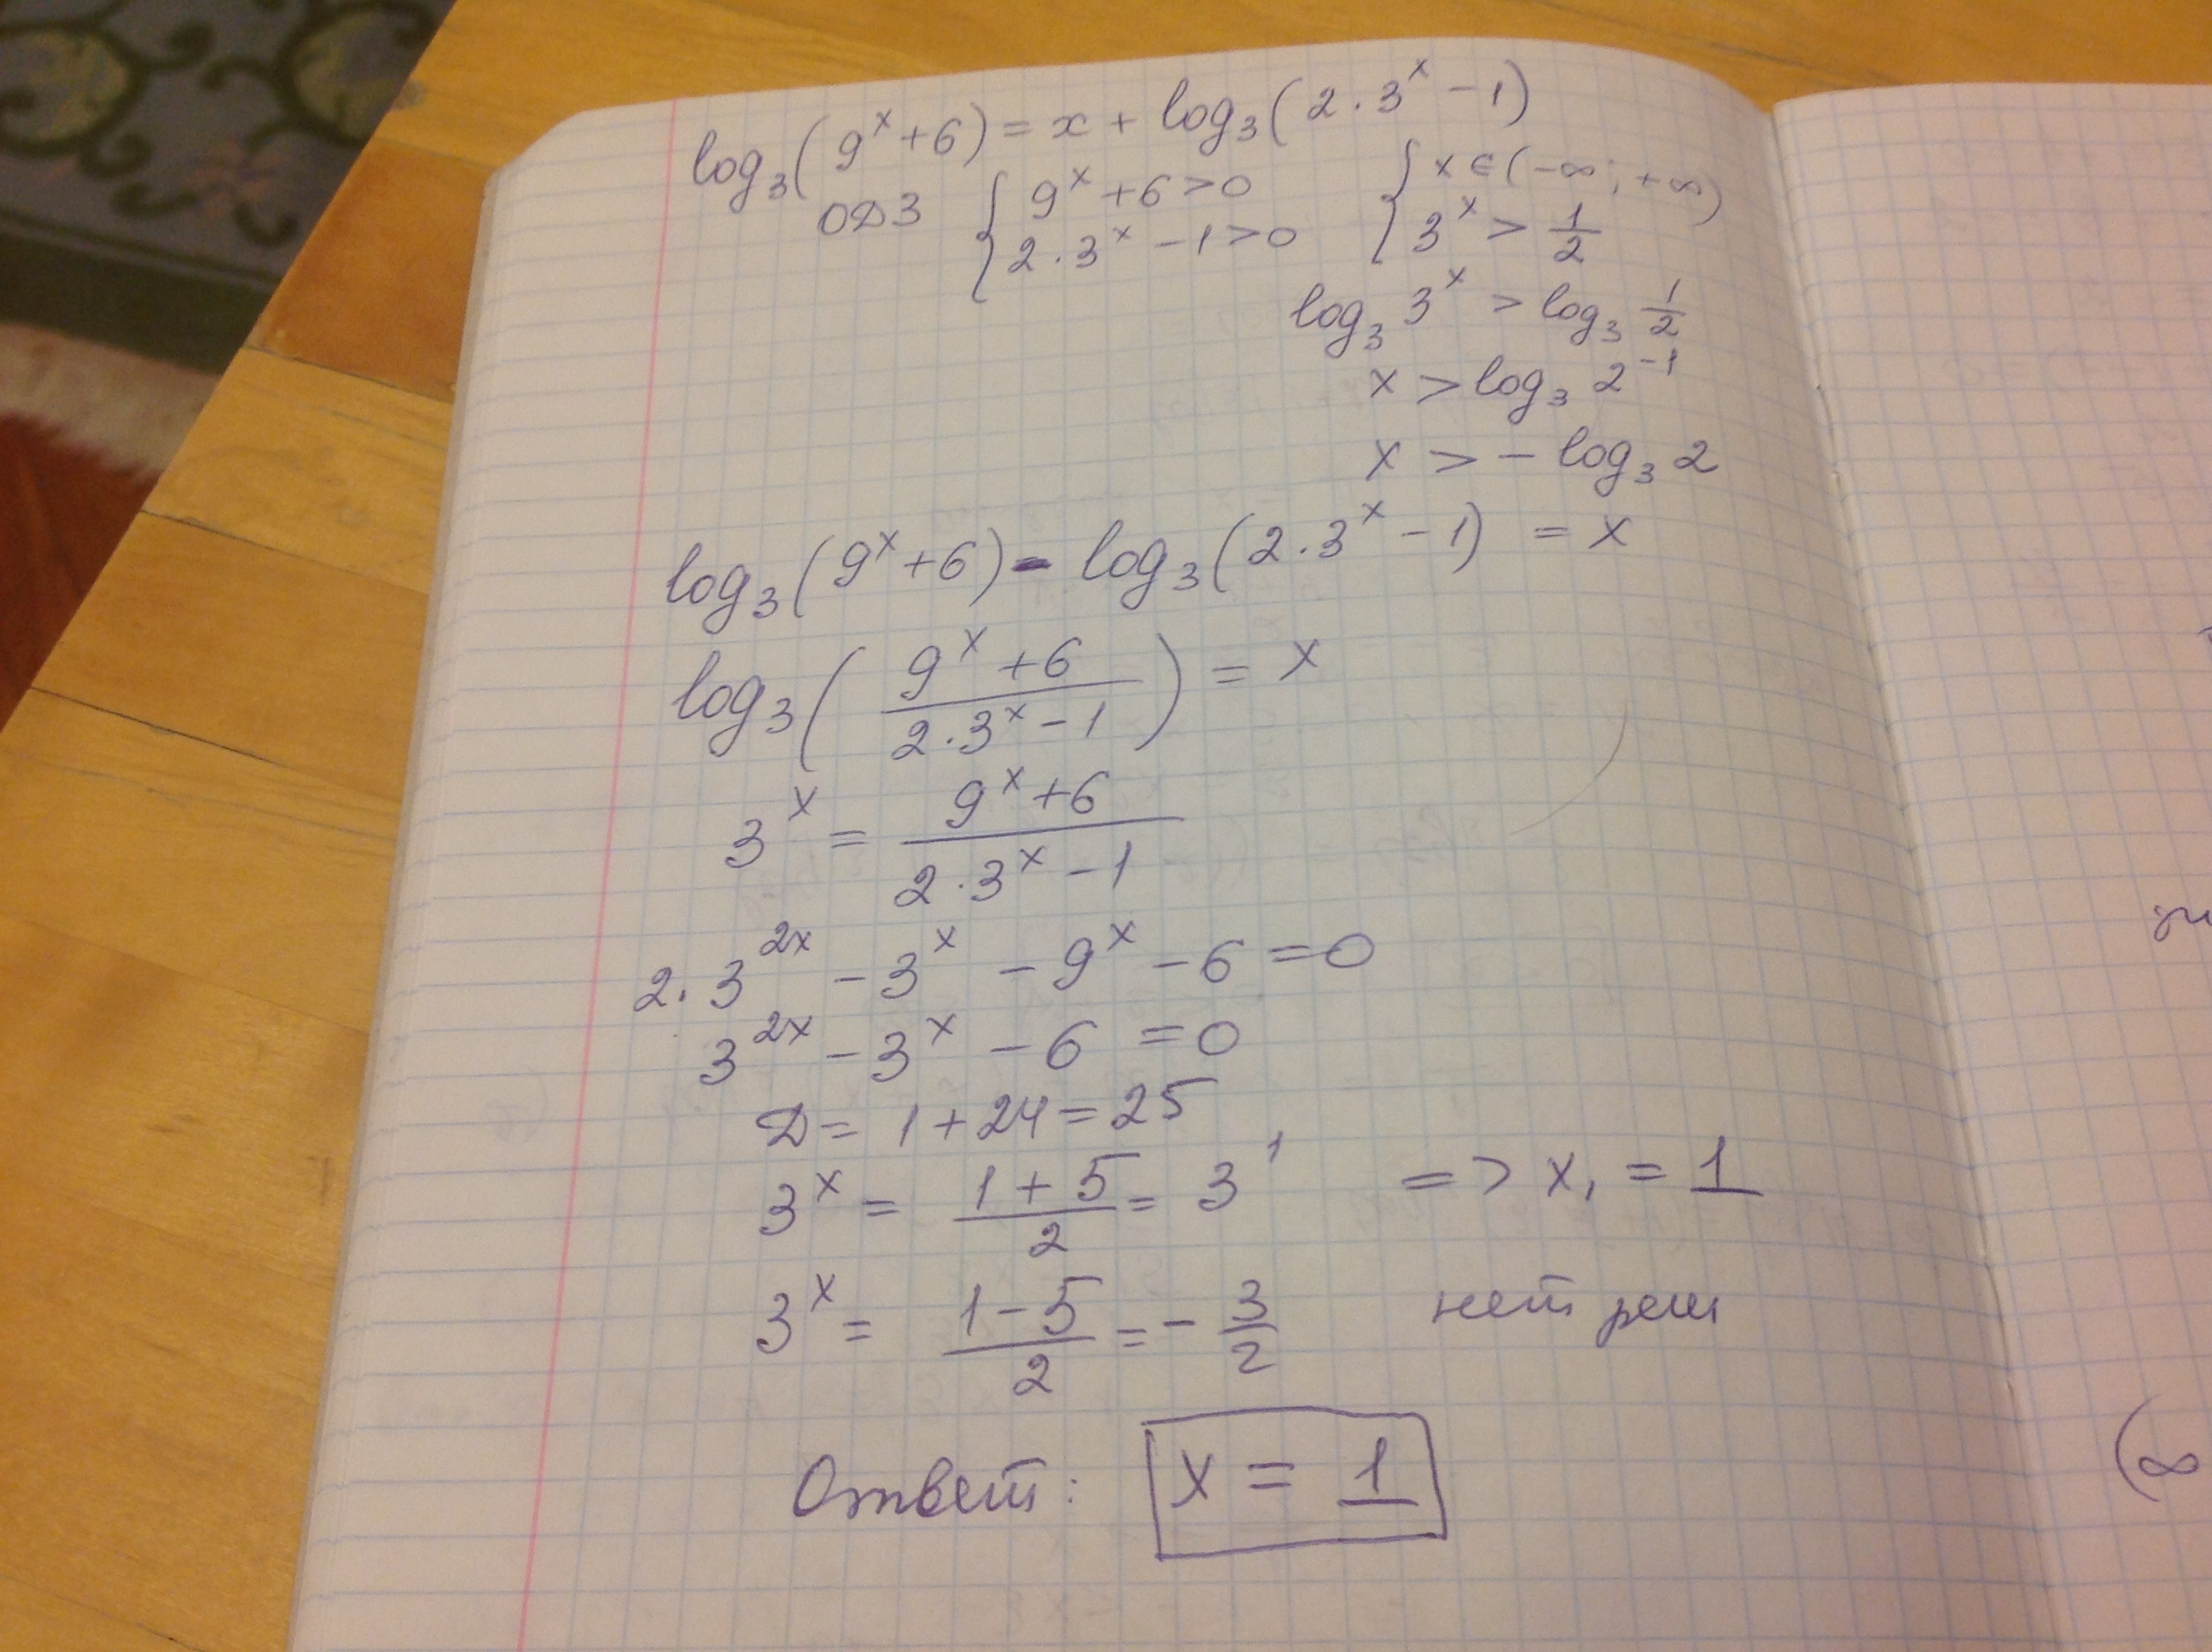 log₃(9ˣ+6) = x + log₃(2·3ˣ − 1)
ОДЗ { 9ˣ + 6 > 0 { x ∈ (−∞; +∞)
2·3ˣ − 1 > 0 3ˣ > 1/2
log₃ 3ˣ > log₃ 1/2
x > log₃ 2⁻¹
x > − log₃ 2
log₃(9ˣ+6) − log₃(2·3ˣ − 1) = x
log₃((9ˣ+6)/(2·3ˣ − 1)) = x
3ˣ = (9ˣ+6)/(2·3ˣ − 1)
2·3²ˣ − 3ˣ − 9ˣ − 6 = 0
3²ˣ − 3ˣ − 6 = 0
Д = 1 + 24 = 25
3ˣ = (1+5)/2 = 3¹ => x₁ = 1
3ˣ = (1−5)/2 = − 3/2 нет реш
Ответ: x = 1
(∞